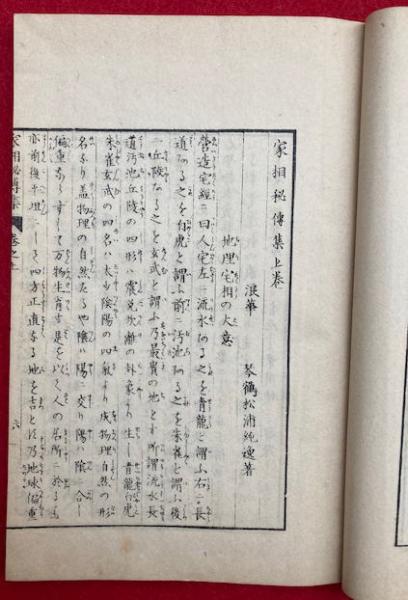 家相秘傳集上巻
浪華 琴鶴松浦純逸著
地理宅相の大意
營造宅經ニ曰人宅左ニ流水ある之を青龍と謂ふ右ニ長
道ある之を白虎と謂ふ前ニ汚池ある之を朱雀と謂ふ後
ニ丘陵ある之を玄武と謂ふ乃最貴の地とす所謂流水長
道汚池丘陵の四形ハ震兌坎離の卦象より生し青龍白虎
朱雀玄武の四名ハ太少陰陽の四象より成物理自然の形
名なり蓋物理の自然たるや陰ハ陽ニ交り陽ハ陰ニ合し
偏重ならすして万物生育す是を以て人の居所ニ於る
亦前後平坦ニしき四方正直なる地を吉とす乃地球偏重
家相秘傳集 巻之上 六